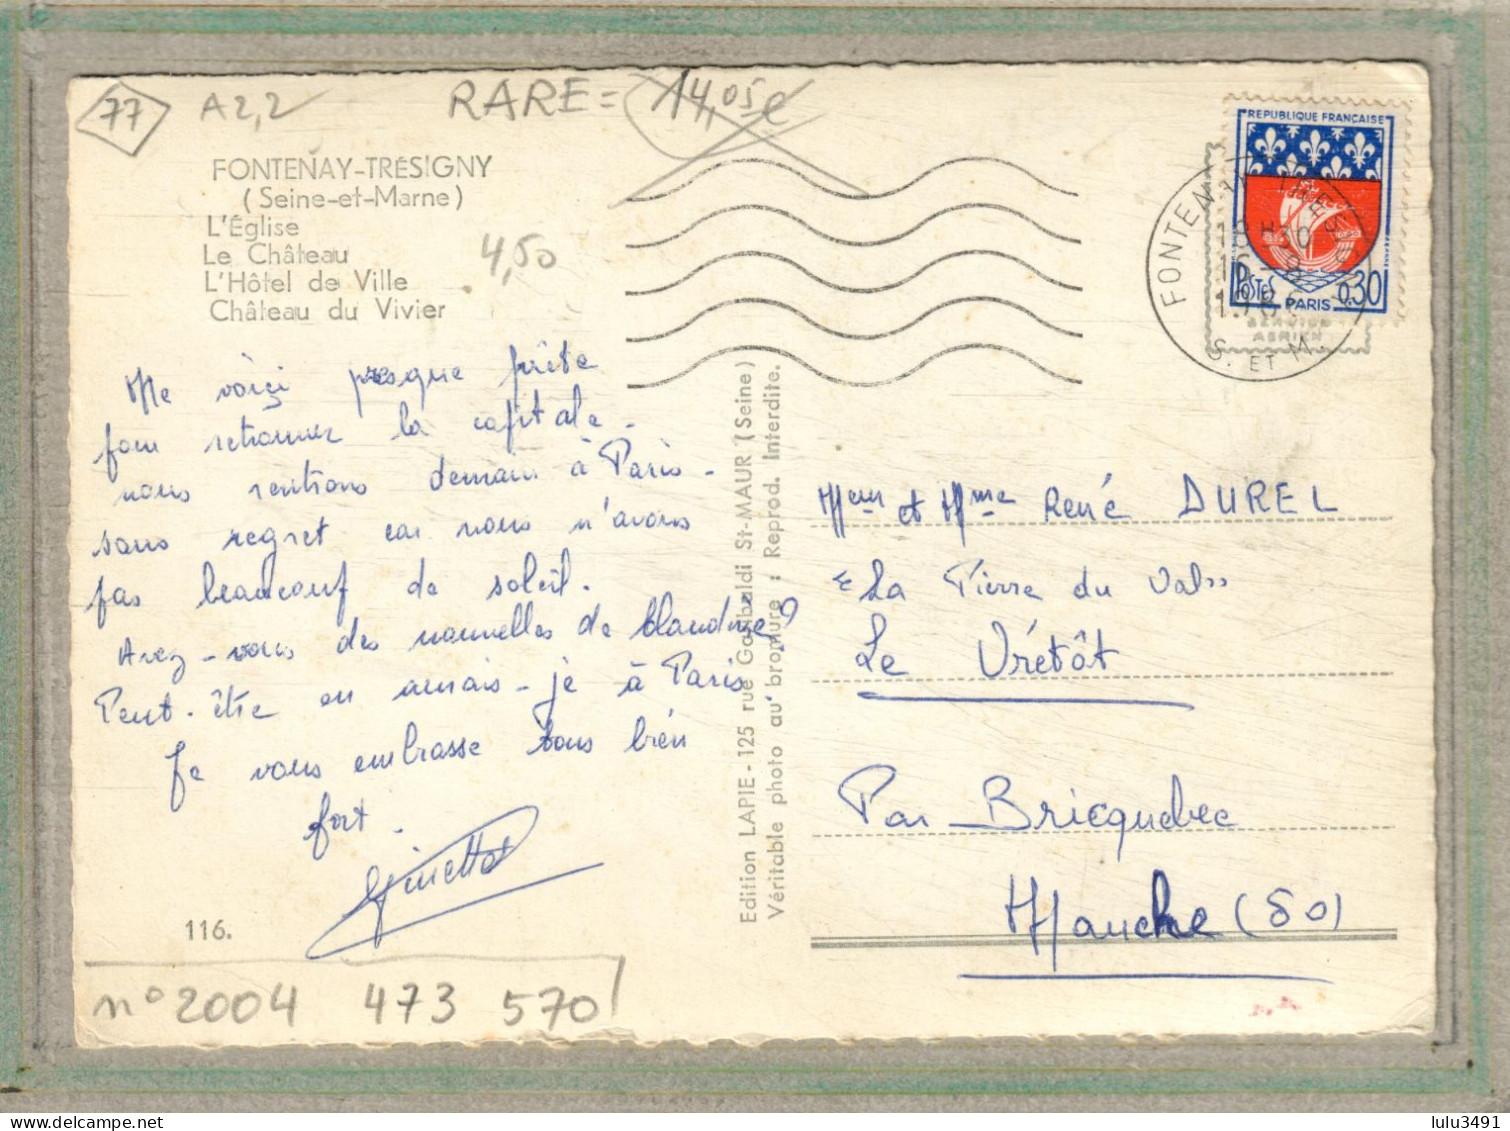 77
A2,2
RARE = 14,05€
FONTENAY-TRÉSIGNY
(Seine-et-Marne)
L'Église
Le Château
L'Hôtel de Ville
Château du Vivier
4,50
RÉPUBLIQUE FRANÇAISE
POSTES
PARIS
0,30
FONTENAY TRESIGNY
18H30
16-8
S. ET M.
Me voici presque prête
pour retrouver la capitale.
nous rentrons demain à Paris -
sans regret car nous n'avons
pas beaucoup de soleil.
Avez-vous des nouvelles de Blandine?
Peut-être en aurais-je à Paris
Je vous embrasse tous bien
fort.
Ginette
116.
n° 2004 473 570
Edition LAPIE - 125 rue Garibaldi St-MAUR (Seine)
Véritable photo au bromure : Reprod. Interdite.
Meur et Mme René DUREL
"La Pierre du Val"
Le Vrétôt
Par Bricquebec
Manche (50)
lulu3491